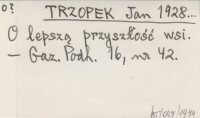 o?
TRZOPEK Jan 1928...
O lepszą przyszłość wsi.
— Gaz. Podh. 16, nr 42.